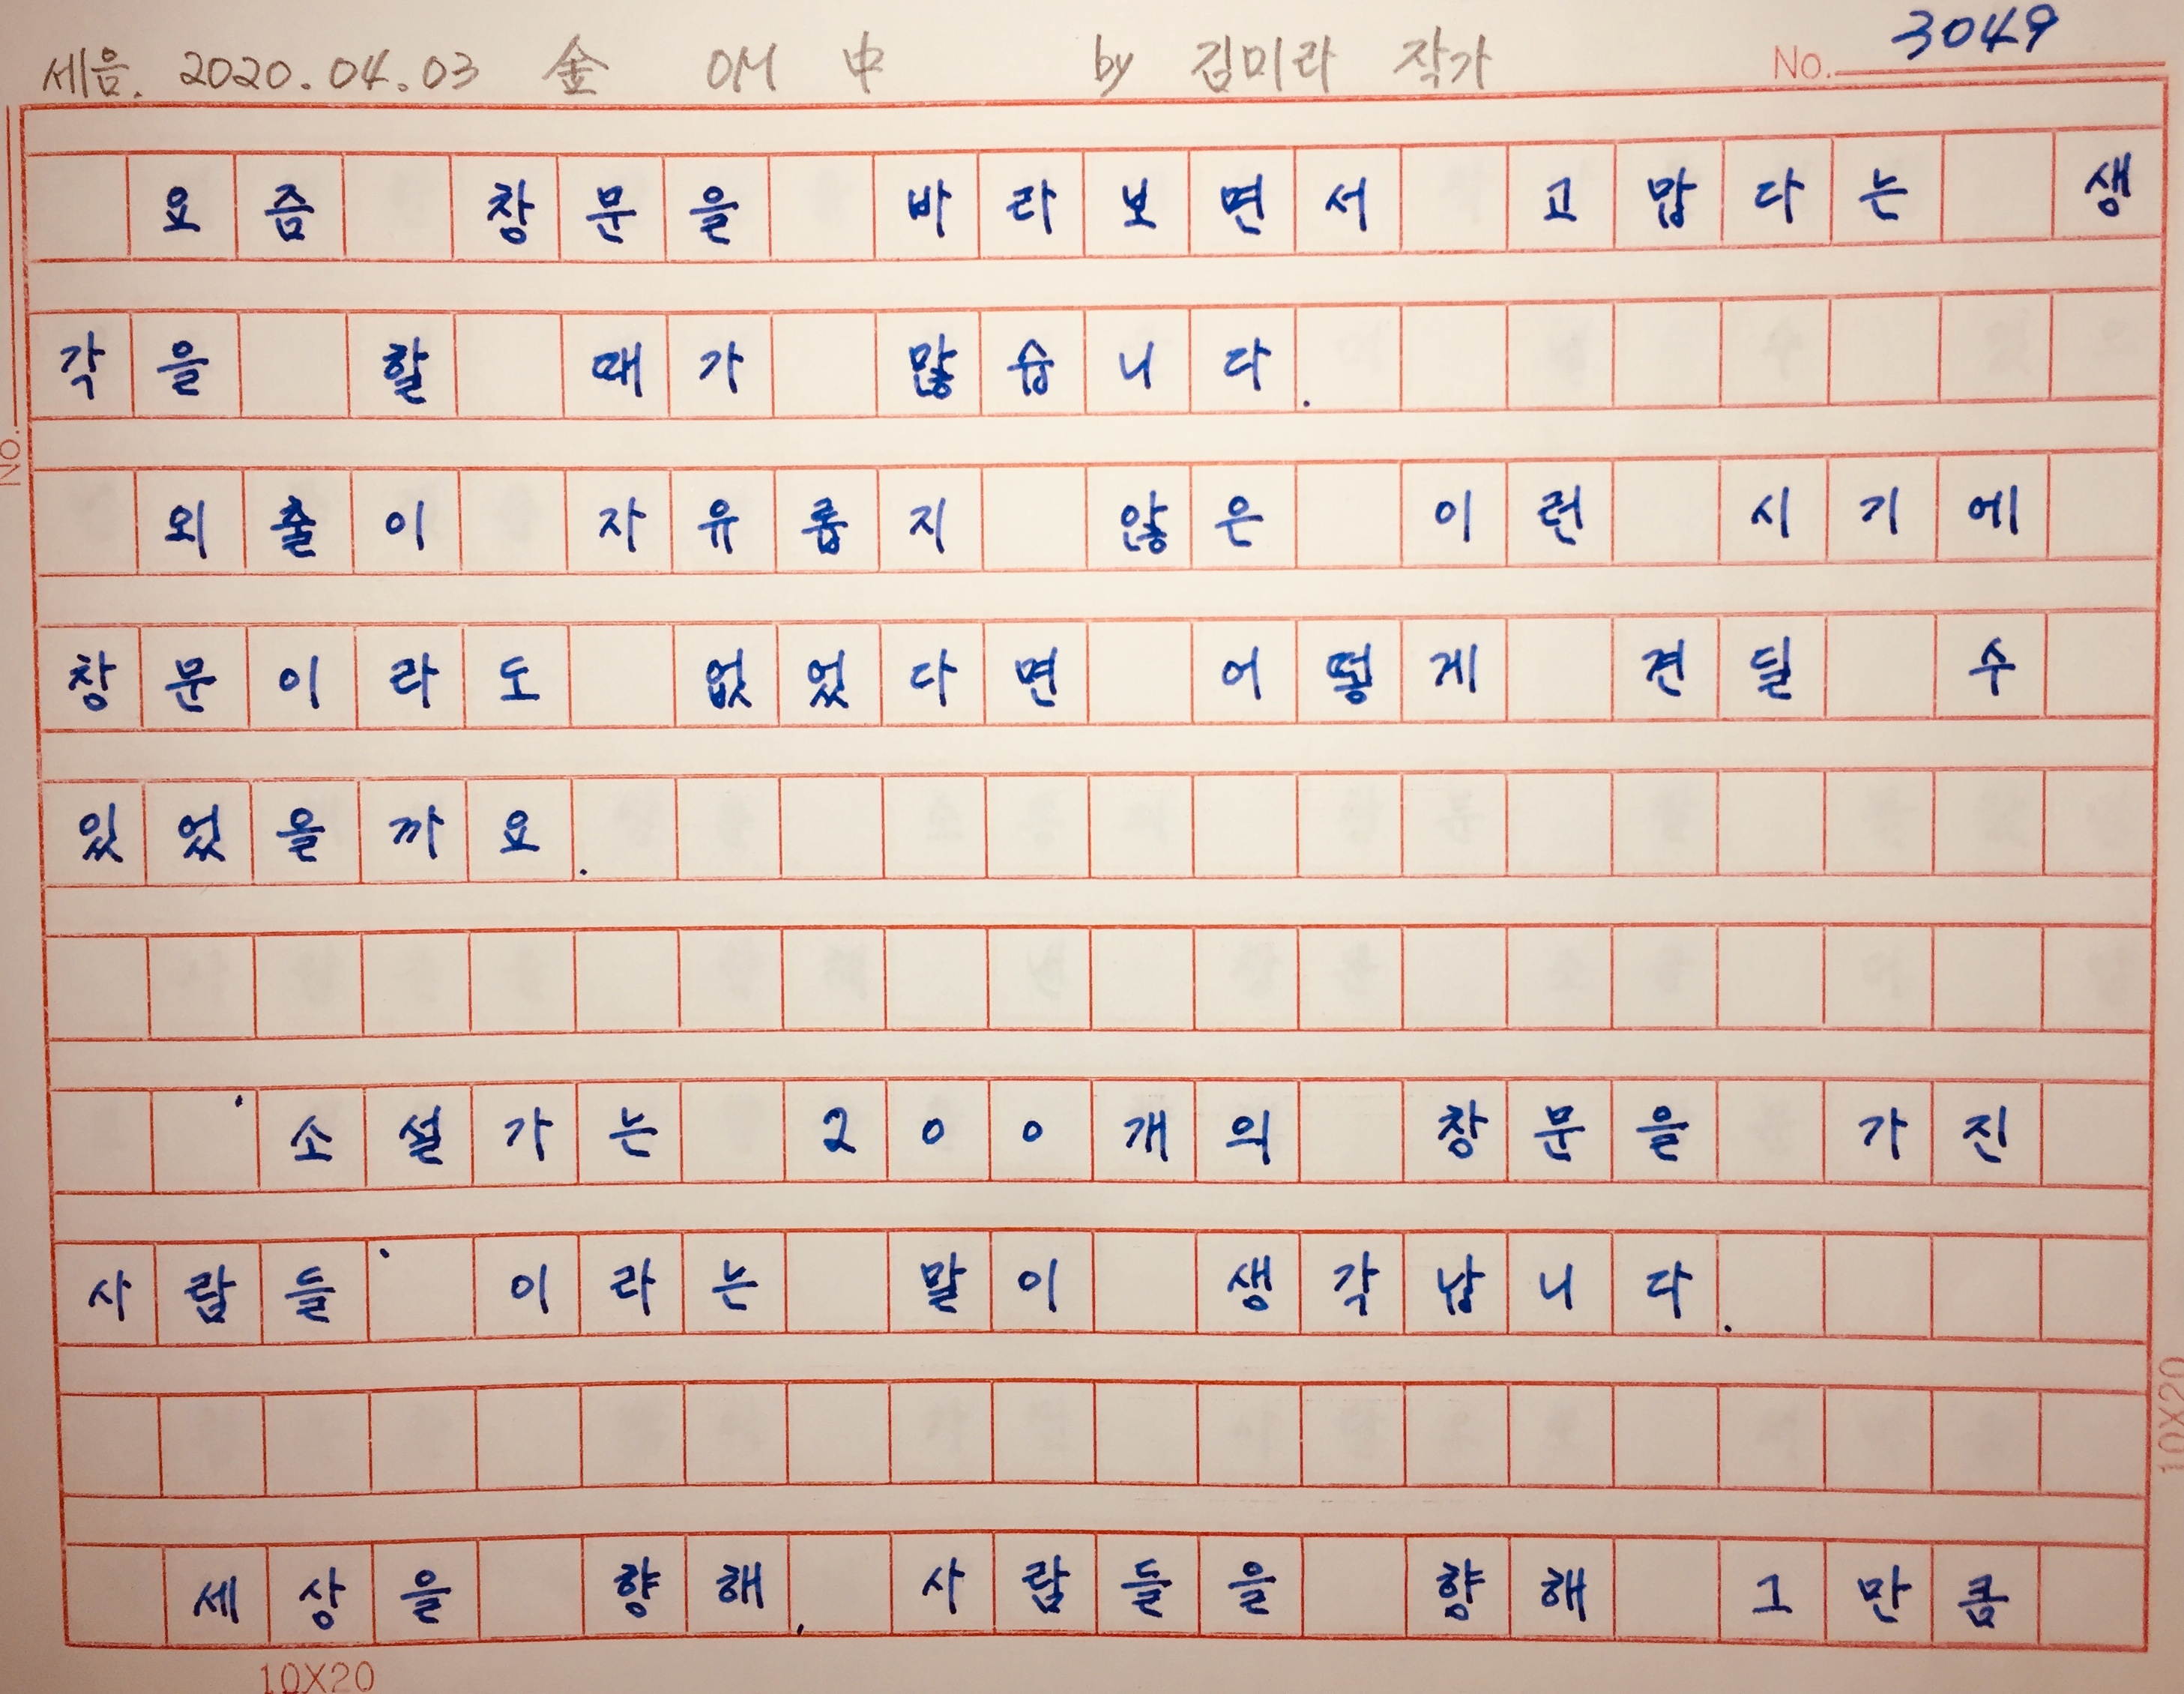 세음. 2020.04.03 金 OM 中 by 김미라 작가 No. 3049
요즘 창문을 바라보면서 고맙다는 생
각을 할 때가 많습니다.
No.
외출이 자유롭지 않은 이런 시기에
창문이라도 없었다면 어떻게 견딜 수
있었을까요.
'소설가는 200개의 창문을 가진
사람들' 이라는 말이 생각납니다.
세상을 향해, 사람들을 향해 그만큼
10X20
10X20